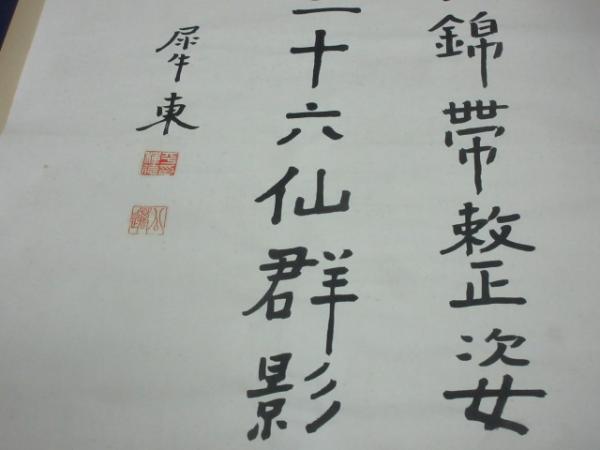 錦帶整正姿
十六仙群影
犀東